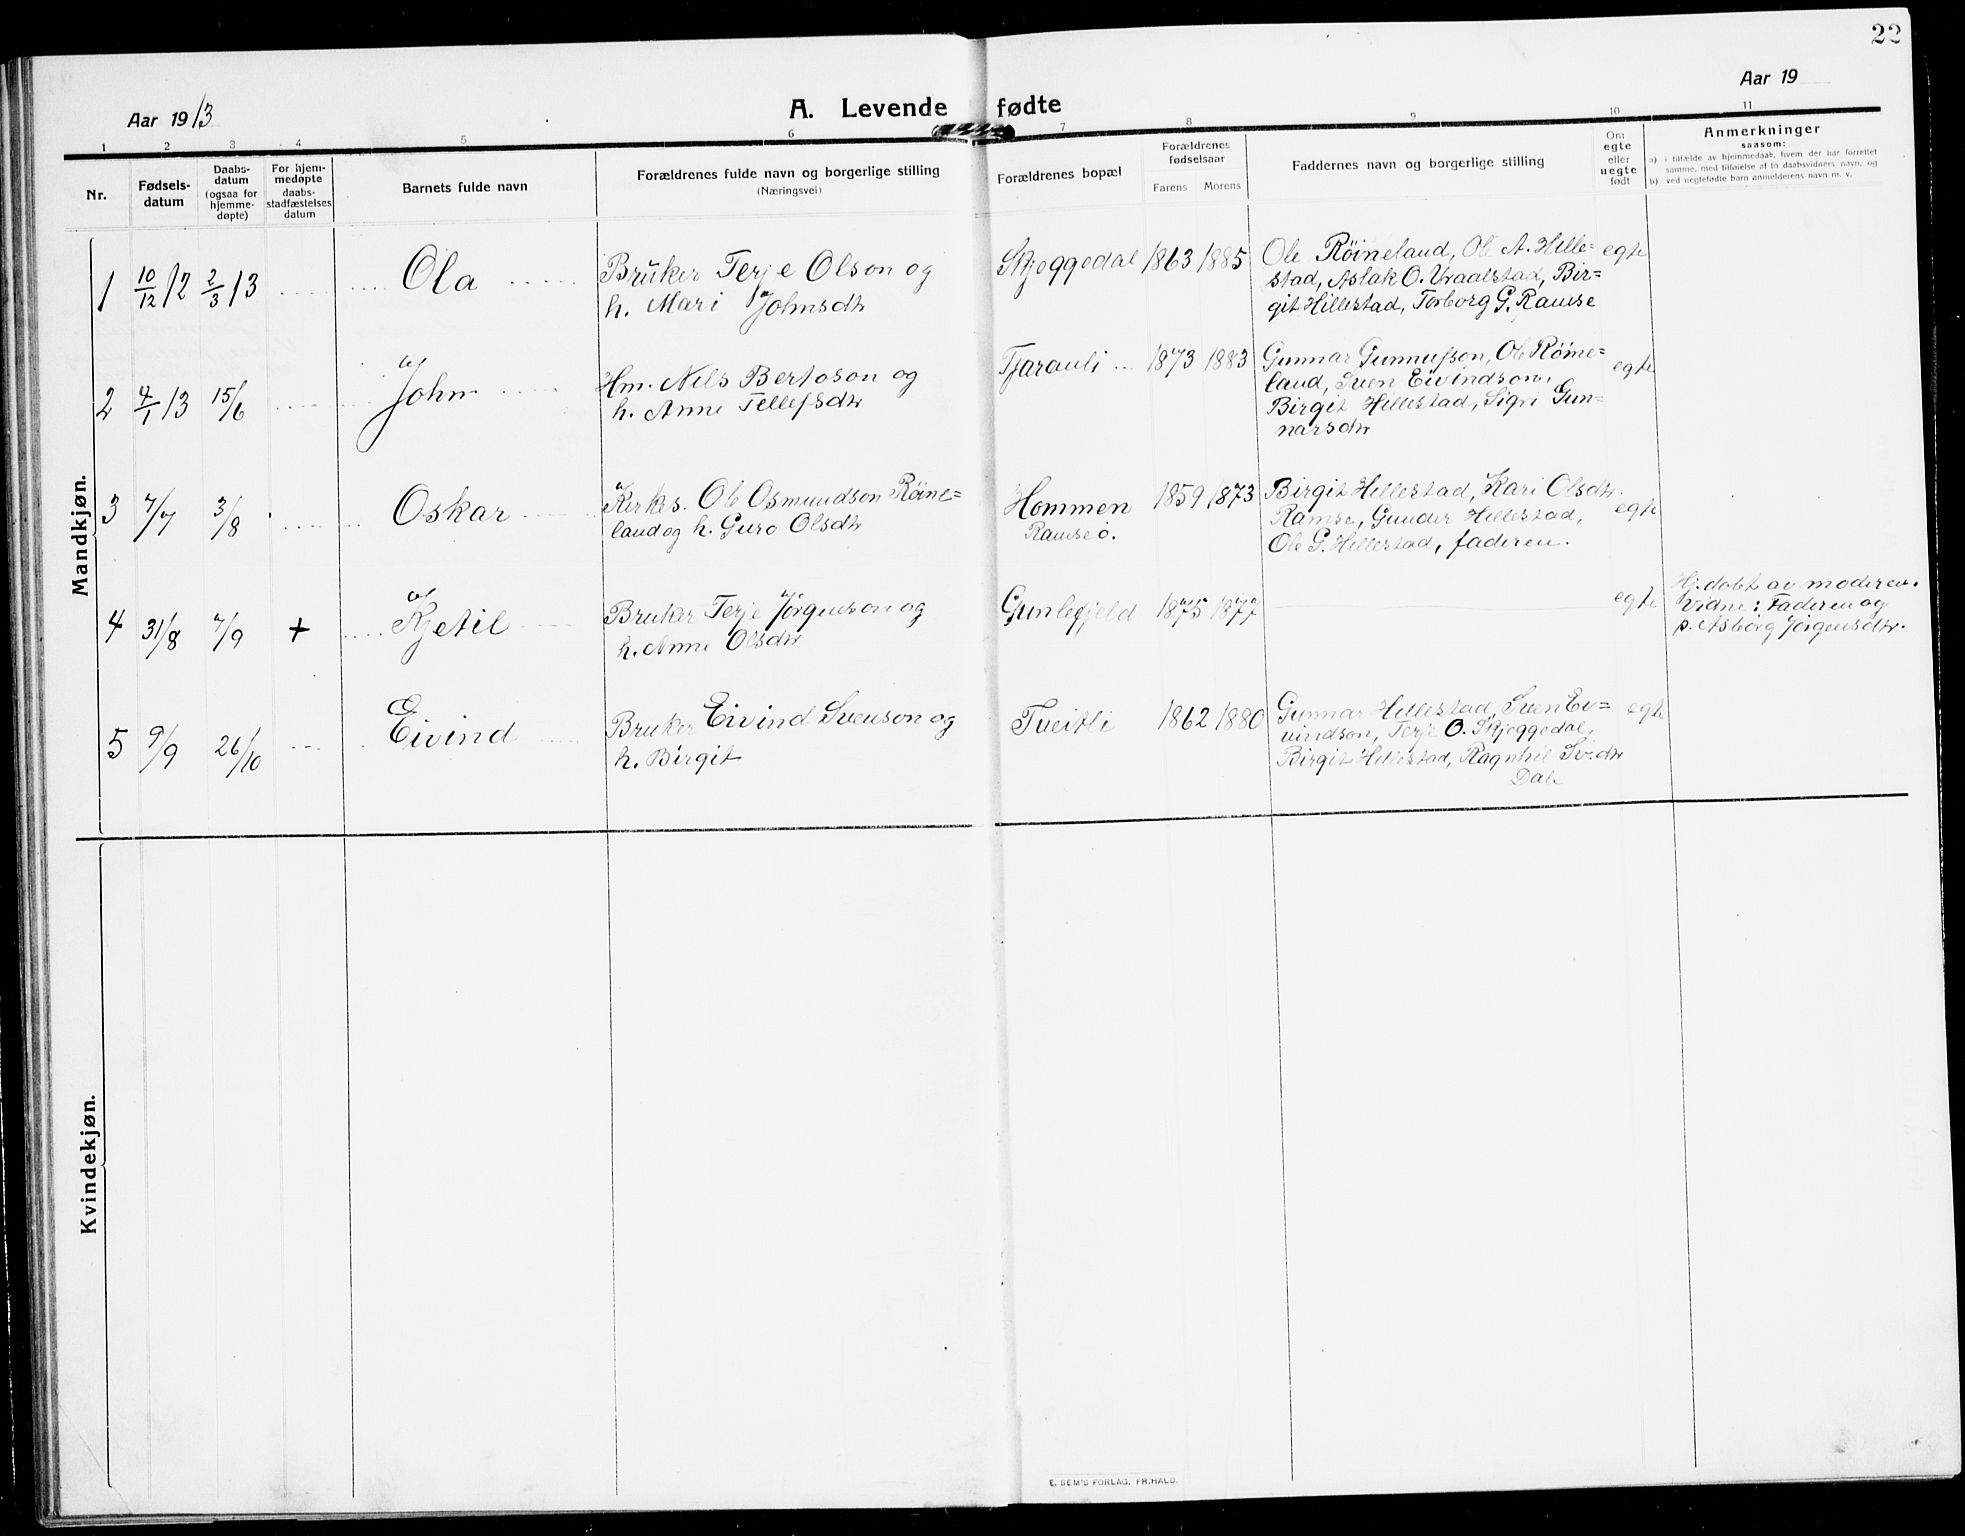 22
Aar 1913
A. Levende fødte
Aar 19
1 2 3 4 5 6 7 8 9 10 11
Nr.
Fødsels-
datum
Daabs-
datum
(ogsaa for
hjemme-
døpte)
For hjem-
medøpte
daabs-
stadfæstelses
datum
Barnets fulde navn
Forældrenes fulde navn og borgerlige stilling
(Næringsvei)
Forældrenes bopæl
Forældrenes
fødselsaar
Farens Morens
Faddernes navn og borgerlige stilling
Om
egte
eller
uegte
født
Anmerkninger
saasom:
a) i tilfælde av hjemmedaab, hvem der har forrettet
samme, med tilføielse af to daabsvidners navn, og
b) ved uegtefødte barn anmelderens navn m. v.
Mandkjøn.
1 10/12 12 2/3 13 Ola
Bruker Terje Olson og
h. Mari Johnsdtr
Skjeggedal 1863 1885
Ole Röineland, Ole A. Hille=
stad, Aslak O. Vraalstad, Bir=
git Hillestad, Torborg G. Ramse
egte
2 7/1 13 15/6 John
Hm. Nils Bertoson og
h. Anne Tellefsdtr
Tjarauli 1873 1883
Gunnar Gunnufson, Ole Röine=
land, Sven Eivindson,
Birgit Hillestad, Sigri Gun=
narsdtr
egte
3 7/7 3/8 Oskar
Kirkes. Ole Osmundson Röine=
land og h. Guro Olsdtr
Hommen
Ramse ö.
1859 1873
Birgit Hillestad, Kari Olsdtr.
Ramse, Gunder Hillestad,
Ole G. Hillestad, faderen.
egte
4 31/8 7/9 + Kjetil
Bruker Terje Jörgenson og
h. Anne Olsdtr
Gunlefjeld 1875 1877
egte
Hj. döbt av moderen.
Vidne: Faderen og
p. Asborg Jörgensdtr.
5 9/9 26/10 Eivind
Bruker Eivind Svenson og
h. Birgit
Tveitli 1862 1880
Gunnar Hillestad, Sven Ei=
vindson, Terje O. Skjeggedal,
Birgit Hillestad, Ragnhil Sv.dtr
Dale
egte
Kvindekjøn.
E. SEM'S FORLAG, FR.HALD.